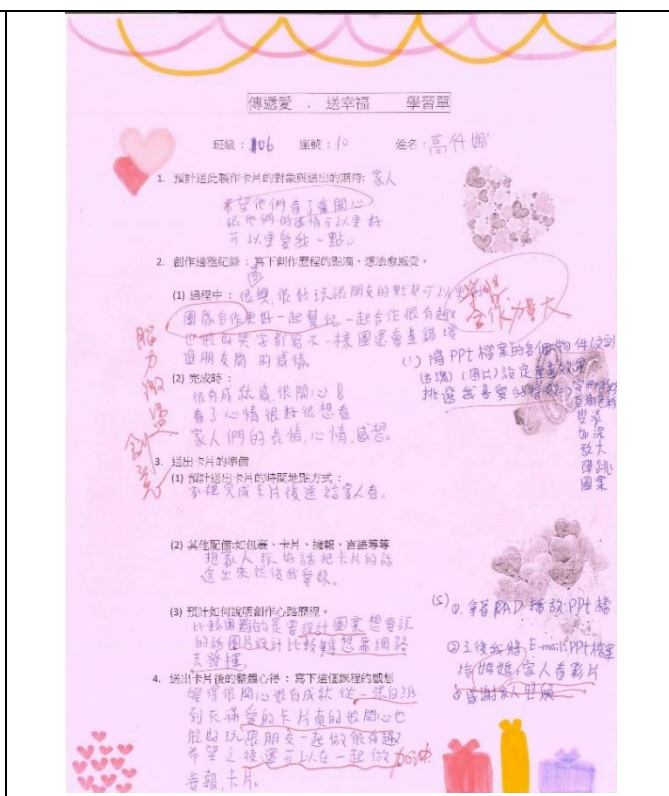 傳遞愛 . 送幸福 學習單
班級：106 座號：10 姓名：高仟
1. 預計送此製作卡片的對象與送出的期待: 家人
希望他們看了會開心
跟他們的感情可以更好
可以更愛我一點。
2. 創作過程紀錄：寫下創作歷程的點滴、想法愈感受。
(1) 過程中：很好玩跟朋友的默契可以
團隊合作一起合作很有趣
朋友間的感情。
合作力量大
腦力激盪
創意
(1) 將PPt檔案的各個物件(文字)
(圖片)設定動畫效果
挑選我喜愛的特效
加深
放大
彈跳
圖案
(2) 完成時：
很有成就感,很開心
看了心情很好很想看
家人們的表情,心情,感想。
3. 送出卡片的準備
(1) 預計送出卡片的時間地點方式：
家裡完成卡片後送給家人看。
(2) 其他配備:如包裹、卡片、擁報、言語等等
抱家人說好話把卡片的話
送出來然後我愛你。
(3) 預計如何說明創作心路歷程。
比較困難的是要設計圖案想要說
的話圖片設計比較難想靠網路
去發揮。
(5) ①.拿著PAD播放PPt檔
②之後我將E-mail:PPt檔案
給媽媽/家人看影片
感謝家人照顧
4. 送出卡片後的整體心得：寫下這個課程的感想
覺得很開心很有成就從一張白紙
到充滿愛的卡片真的很開心也
很好玩跟朋友一起做很有趣
希望之後還可以在一起做
海報,卡片。
加油